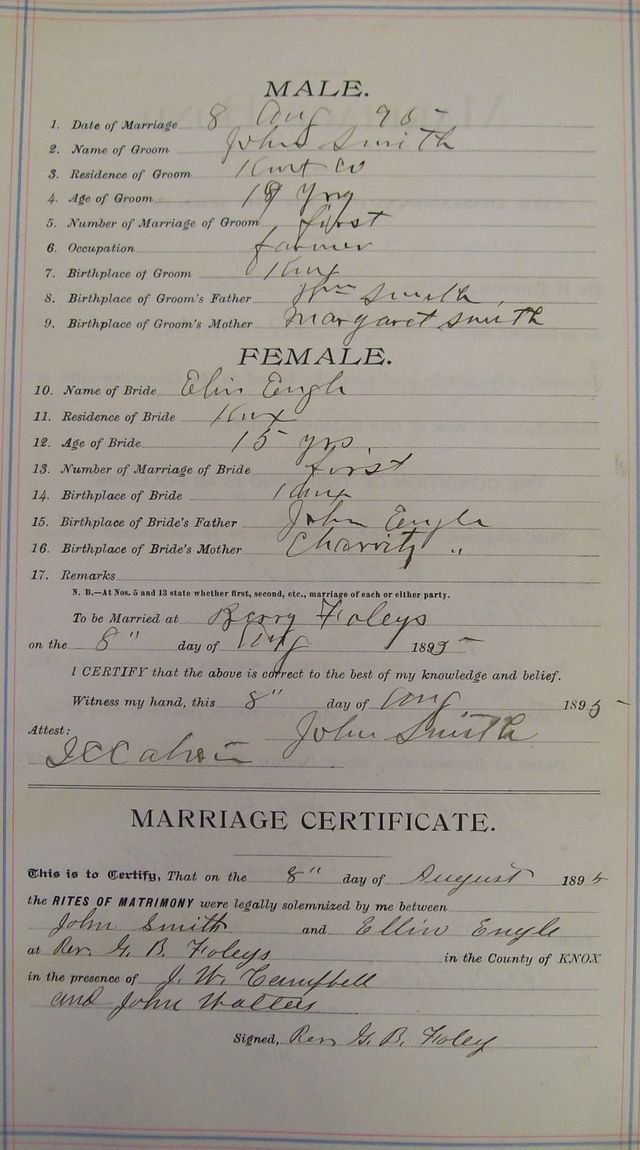 MALE.
1. Date of Marriage 8 Aug 95
2. Name of Groom John Smith
3. Residence of Groom Knx Co
4. Age of Groom 19 Yrs
5. Number of Marriage of Groom first
6. Occupation farmer
7. Birthplace of Groom Knx
8. Birthplace of Groom's Father Wm Smith
9. Birthplace of Groom's Mother Margaret Smith
FEMALE.
10. Name of Bride Engle
11. Residence of Bride Knx
12. Age of Bride 15 yrs.
13. Number of Marriage of Bride first
14. Birthplace of Bride Knx
15. Birthplace of Bride's Father John Engle
16. Birthplace of Bride's Mother Charrity "
17. Remarks
N. B.—At Nos. 5 and 13 state whether first, second, etc., marriage of each or either party.
To be Married at Berry Foleys
on the 8" day of Aug 1895
I CERTIFY that the above is correct to the best of my knowledge and belief.
Witness my hand, this 8" day of Aug 1895
Attest: John Smith
MARRIAGE CERTIFICATE.
This is to Certify, That on the 8" day of August 1895
the RITES OF MATRIMONY were legally solemnized by me between
John Smith and Ellin Engle
at Rev. G. B. Foleys in the County of KNOX
in the presence of J. W. Campbell
and John Walters
Signed, Rev G. B. Foley